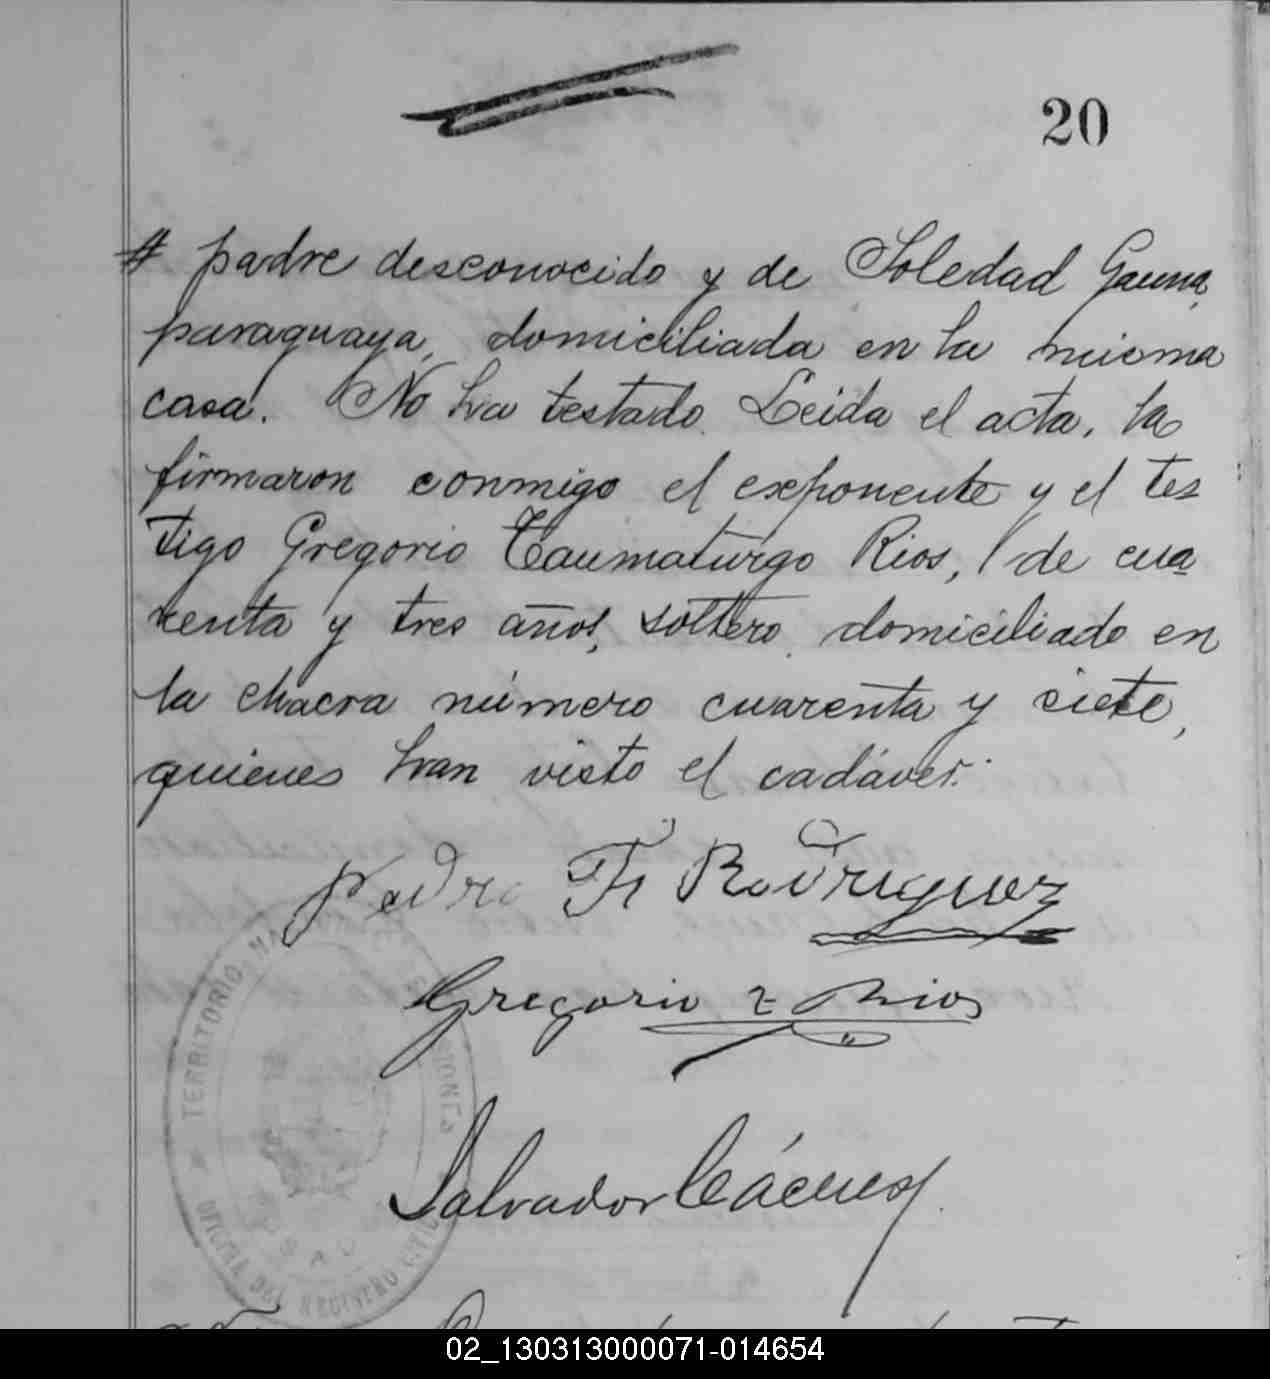 20
# padre desconocido y de Soledad Gauna,
paraguaya, domiciliada en la misma
casa. No ha testado. Leida el acta, la
firmaron conmigo el exponente y el tes
tigo Gregorio Taumaturgo Rios, de cua
renta y tres años, soltero, domiciliado en
la chacra número cuarenta y siete,
quienes han visto el cadáver.
Pedro F. Rodriguez
Gregorio T Rios
TERRITORIO
OFICINA DEL REGISTRO CIVIL
Salvador Cáceres
02_130313000071-014654